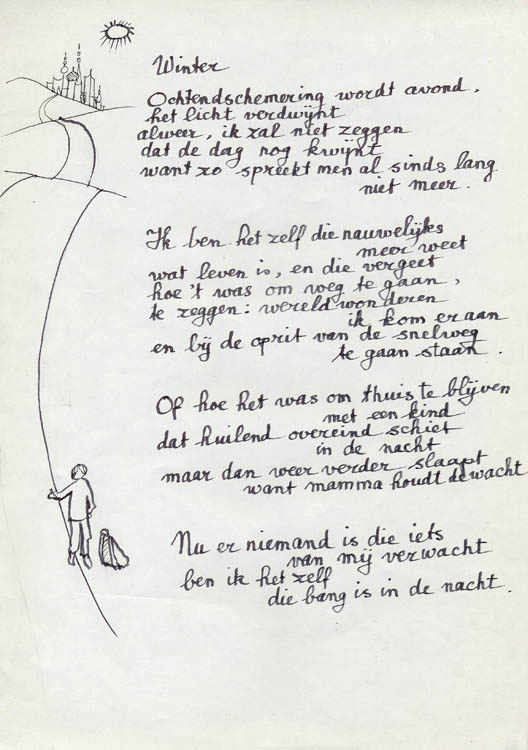 Winter
Ochtendschemering wordt avond,
het licht verdwijnt
alweer, ik zal niet zeggen
dat de dag nog kwijnt
want zo spreekt men al sinds lang
niet meer.
Ik ben het zelf die nauwelijks
meer weet
wat leven is, en die vergeet
hoe 't was om weg te gaan,
te zeggen: wereldwonderen
ik kom eraan
en bij de oprit van de snelweg
te gaan staan.
Of hoe het was om thuis te blijven
met een kind
dat huilend overeind schiet
in de nacht
maar dan weer verder slaapt
want mamma houdt de wacht
Nu er niemand is die iets
van mij verwacht
ben ik het zelf
die bang is in de nacht.